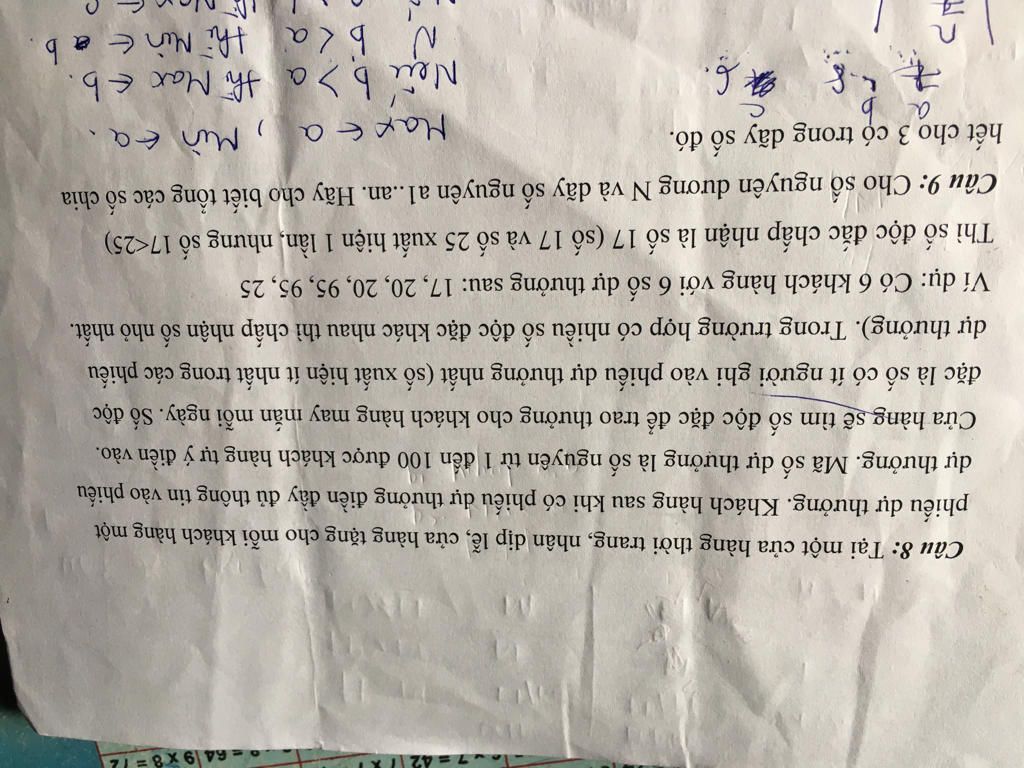 Câu 8: Tại một cửa hàng thời trang, nhân dịp lễ, cửa hàng tặng cho mỗi khách hàng một
phiếu dự thưởng. Khách hàng sau khi có phiếu dự thưởng điền đầy đủ thông tin vào phiếu
dự thưởng. Mã số dự thưởng là số nguyên từ 1 đến 100 được khách hàng tự ý điền vào.
Cửa hàng sẽ tìm số độc đắc để trao thưởng cho khách hàng may mắn mỗi ngày. Số độc
đắc là số có ít người ghi vào phiếu dự thưởng nhất (số xuất hiện ít nhất trong các phiếu
dự thưởng). Trong trường hợp có nhiều số độc đặc khác nhau thì chấp nhận số nhỏ nhất.
Ví dụ: Có 6 khách hàng với 6 số dự thưởng sau: 17, 20, 20, 95, 95, 25
Thì số độc đắc chấp nhận là số 17 (số 17 và số 25 xuất hiện 1 lần, nhưng số 17<25)
Câu 9: Cho số nguyên dương N và dãy số nguyên a1..an. Hãy cho biết tổng các số chia
hết cho 3 có trong dãy số đó.
a b c
7 8 6.
Max ← a, Min ← a.
Nếu b > a thì Max ← b.
N b < a thì Min ← b.
7 = 42
= 64 9 x 8 = 72